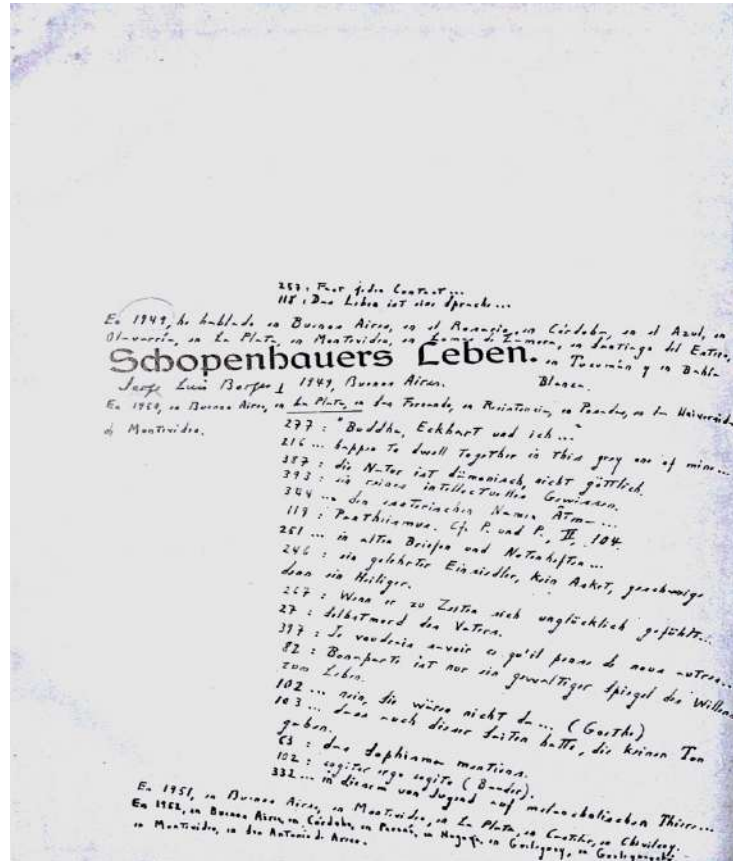 257 : Fast jedes Contact...
118 : Das Leben ist eine Sprache...
En 1949, he hablado en Buenos Aires, en el Rosario, en Córdoba, en el Azul, en
Olavarría, en La Plata, en Montevideo, en Lomas de Zamora, en Santiago del Estero,
Schopenhauers Leben. en Tucumán y en Bahía
Jorge Luis Borges 1949, Buenos Aires. Blanca.
En 1950, en Buenos Aires, en La Plata, en San Fernando, en Resistencia, en Posadas, en la Universidad
de Montevideo.
277 : "Buddha, Eckhart und ich..."
216 ... happen to dwell together in this grey one of mine...
387 : die Natur ist dämonisch, nicht göttlich.
393 : ein reines intellectuelles Gewissen.
344 ... den esoterischen Namen Ātma...
119 : Pantheismus. Cf. P. und P., II, 104.
251 ... in alten Briefen und Notenheften...
246 : ein gelehrter Einsiedler, kein Asket, geschweige
denn ein Heiliger.
267 : Wenn er zu Zeiten sich unglücklich gefühlt...
27 : Selbstmord des Vaters.
397 : Je voudrais savoir ce qu'il pense de nous autres...
82 : Bonaparte ist nur ein gewaltiger Spiegel des Willens
zum Leben.
102 ... nein, Sie wären nicht da... (Goethe)
103 ... dass auch dieser Saiten hatte, die keinen Ton
gaben.
63 : das Sophisma mentiens.
102 : cogitor ergo cogito (Baader).
332 ... in diesem von Jugend auf melancholischen Thiere...
En 1951, en Buenos Aires, en Montevideo, en La Plata, en en Chivilcoy.
En 1952, en Buenos Aires, en Córdoba, en Paraná, en Nogoyá, en Gualeguay, en Gualeguaychú
en Montevideo, en San Antonio de Areco.